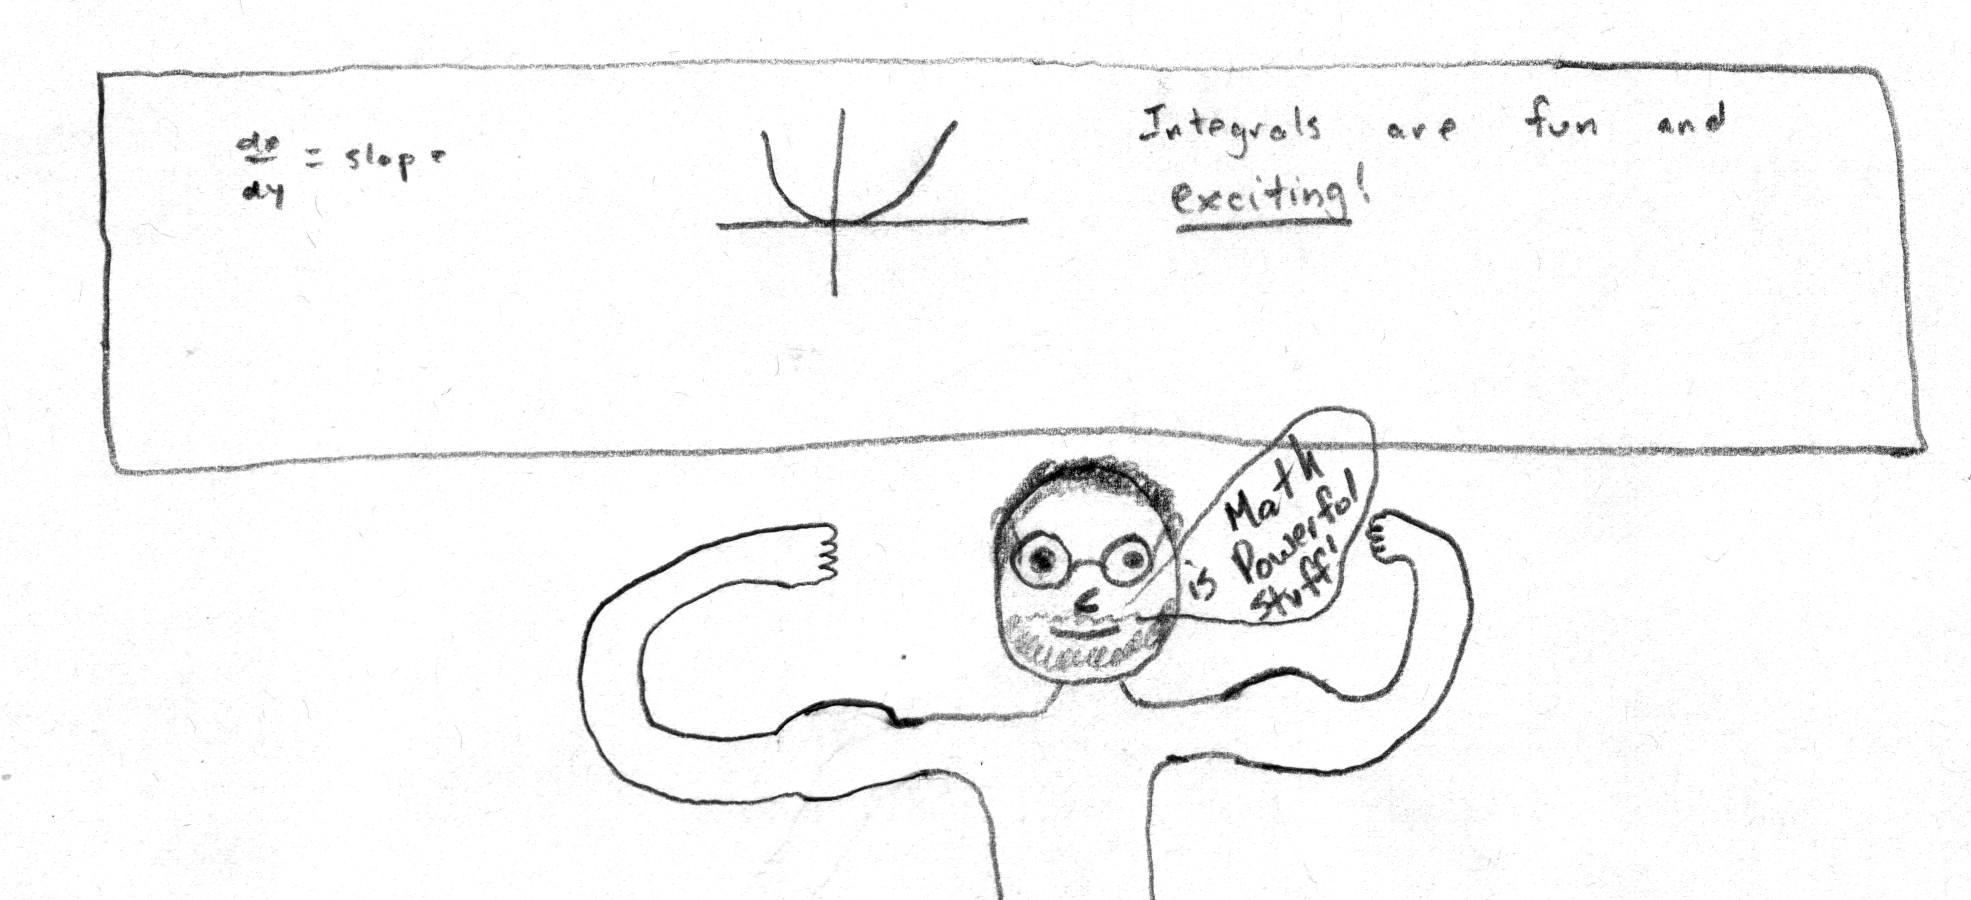 dx
dy
= slope
Integrals are fun and
exciting!
Math
is Powerful
stuff!